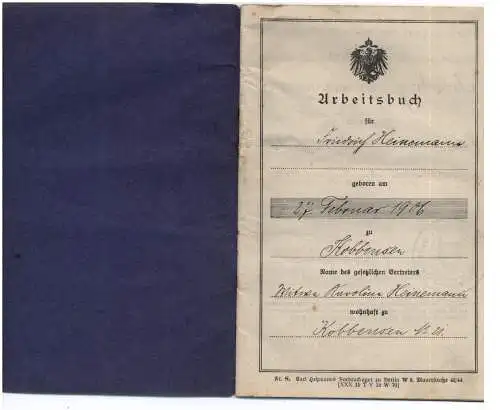 Arbeitsbuch
für
Friedrich Heinemann
geboren am
27. Februar 1906
zu
Kobbensen
Name des gesetzlichen Vertreters
Witwe Karoline Heinemann
wohnhaft zu
Kobbensen
Kl. S. Carl Heymanns Verlag zu Berlin W 8, Mauerstraße 43/44